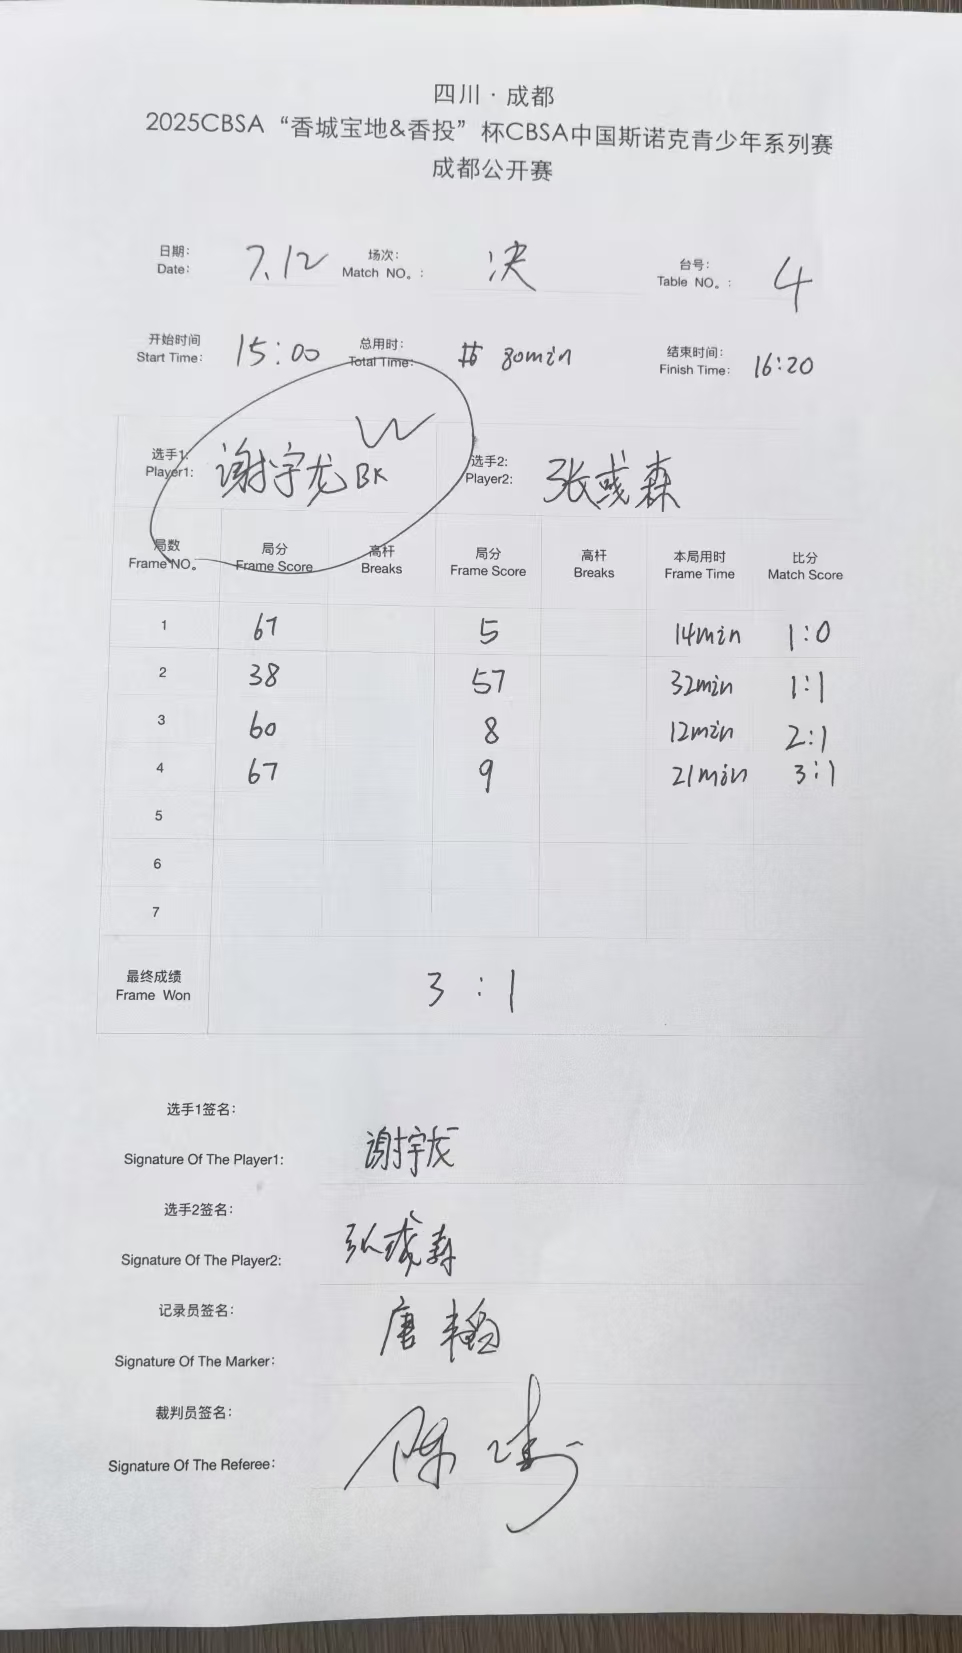 四川·成都
2025CBSA“香城宝地&香投”杯CBSA中国斯诺克青少年系列赛
成都公开赛
日期: 7.12 场次: 决 台号: 4
Date: Match NO。: Table NO。:
开始时间 15:00 总用时: 80min 结束时间: 16:20
Start Time: Total Time: Finish Time:
W
选手1: 谢宇龙 BK 选手2: 张彧森
Player1: Player2:
局数 局分 高杆 局分 高杆 本局用时 比分
Frame NO。 Frame Score Breaks Frame Score Breaks Frame Time Match Score
1 67 5 14min 1:0
2 38 57 32min 1:1
3 60 8 12min 2:1
4 67 9 21min 3:1
5
6
7
最终成绩 3:1
Frame Won
选手1签名:
Signature Of The Player1: 谢宇龙
选手2签名:
Signature Of The Player2: 张彧森
记录员签名:
Signature Of The Marker: 唐韬
裁判员签名:
Signature Of The Referee: 陈